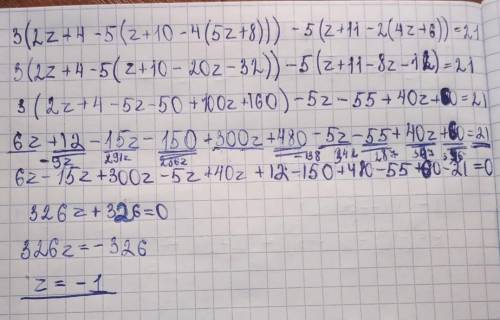 3(2z+4-5(z+10-4(5z+8)))-5(z+11-2(4z+6))=21
3(2z+4-5(z+10-20z-32))-5(z+11-8z-12)=21
3(2z+4-5z-50+100z+160)-5z-55+40z+60=21
6z+12-15z-150+300z+480-5z-55+40z+60=21
-9z 291z
6z-15z+300z-5z+40z+12-150+480-55+60-21=0
326z+326=0
326z=-326
z=-1